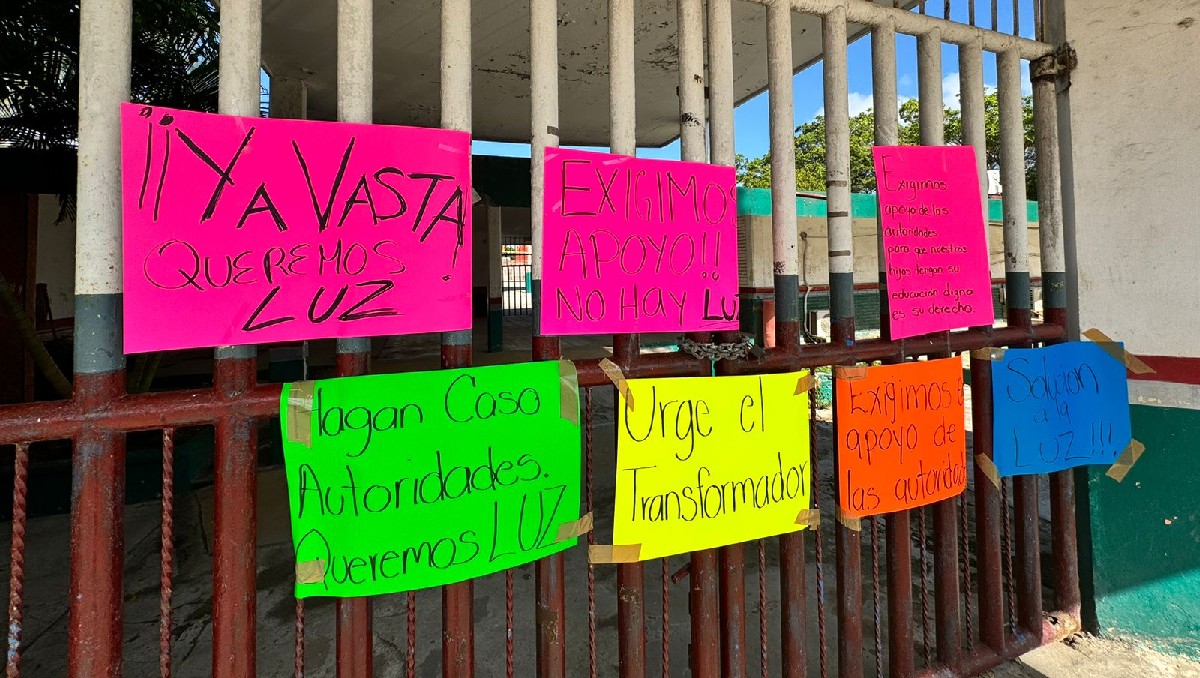 ¡¡YA VASTA!
QUEREMOS
LUZ
EXIGIMOS
APOYO!!
NO HAY LU
Exigimos
apoyo de las
autoridades
para que nuestros
hijos tengan su
educación digna
es su derecho.
Hagan Caso
Autoridades.
Queremos LUZ
Urge el
Transformador
Exigimos
apoyo de
las autorida
Solucion
a la
LUZ!!!